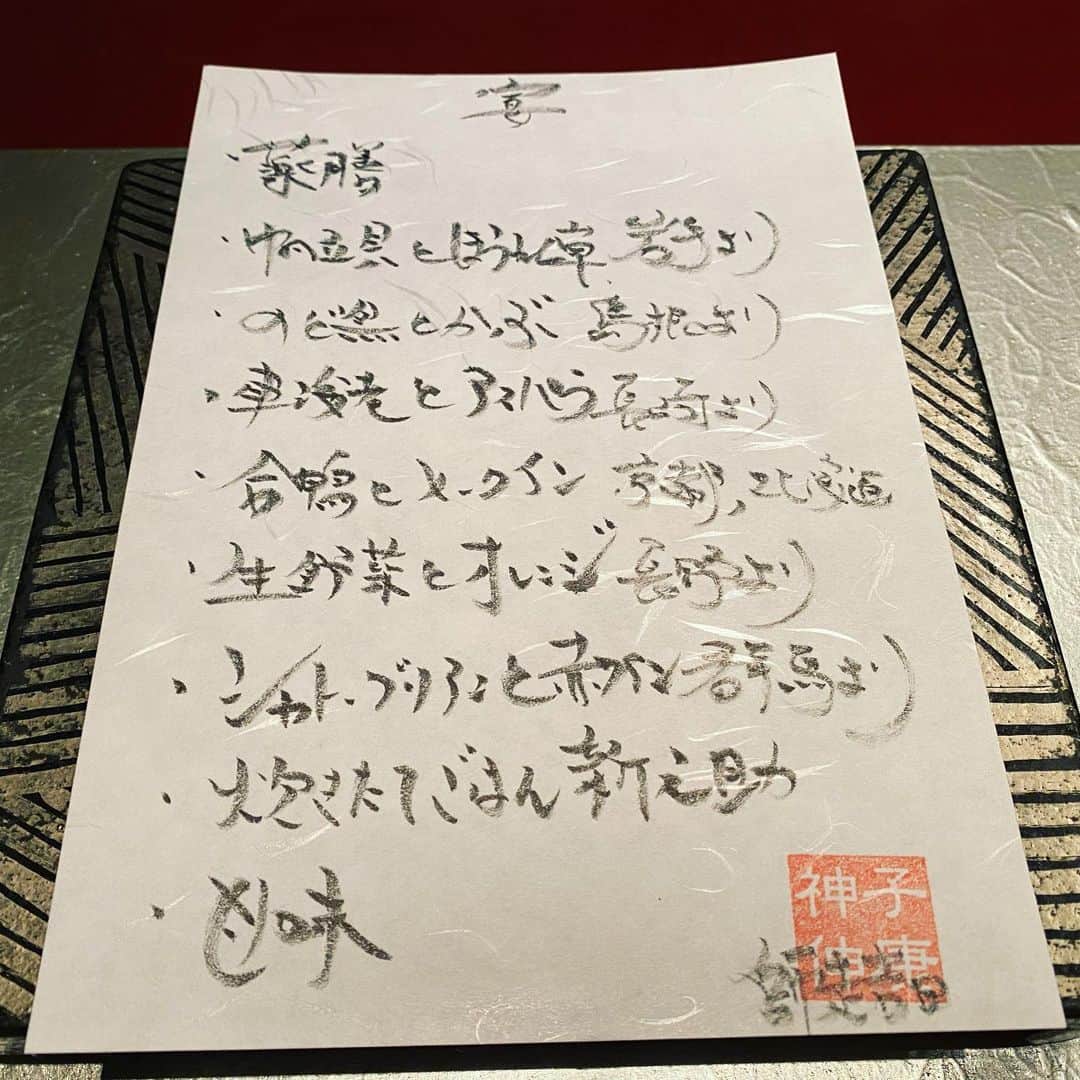 宴
・薬膳
・帆立貝とほうれん草 岩手より)
・のど黒とかぶ 島根より)
・車海老とアスパラ 長崎より)
・合鴨とメークイン 京都、北海道
・生野菜とオレンジ 長野より)
・シャトーブリアンと赤ワイン 群馬より)
・炊きたてごはん 新之助
・甘味
神子